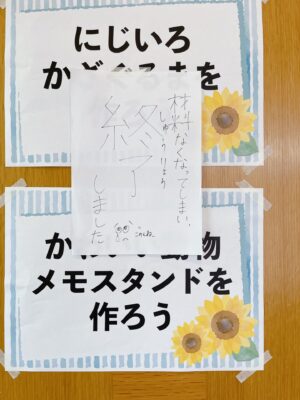 にじいろ
かざぐるまを
材料なくなってしまい、
しゅうりょう
終了
しました
ごめんね
かわいい動物
メモスタンドを
作ろう